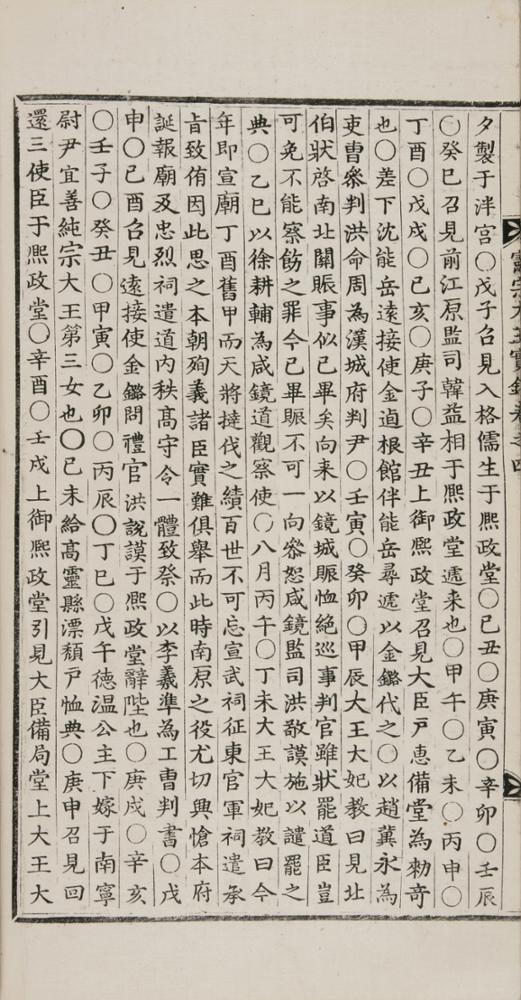 夕製于泮宮〇戊子召見入格儒生于熙政堂〇己丑〇庚寅〇辛卯〇壬辰
〇癸巳召見前江原監司韓益相于熙政堂遞来也〇甲午〇乙未〇丙申〇
丁酉〇戊戌〇己亥〇庚子〇辛丑上御熙政堂召見大臣戶惠備堂為勑竒
也〇差下沈能岳遠接使金逌根館伴能岳尋遞以金鏴代之〇以趙冀永為
吏曹叅判洪命周為漢城府判尹〇壬寅〇癸卯〇甲辰大王大妃教曰見北
伯狀啓南北關賑事似已畢矣向来以鏡城賑恤絶巡事判官雖狀罷道臣豈
可免不能察飭之罪今已畢賑不可一向叅恕咸鏡監司洪敬謨施以譴罷之
典〇乙巳以徐耕輔為咸鏡道觀察使〇八月丙午〇丁未大王大妃教曰今
年即宣廟丁酉舊甲而天將撻伐之績百世不可忘宣武祠征東官軍祠遣承
旨致侑因此思之本朝殉義諸臣實難俱舉而此時南原之役尤切興愴本府
誕報廟及忠烈祠遣道内秩高守令一體致祭〇以李羲準為工曹判書〇戊
申〇己酉召見遠接使金鏴問禮官洪說謨于熙政堂辭陛也〇庚戌〇辛亥
〇壬子〇癸丑〇甲寅〇乙卯〇丙辰〇丁巳〇戊午德温公主下嫁于南寧
尉尹宜善純宗大王第三女也〇己未給高靈縣漂頹戶恤典〇庚申召見回
還三使臣于熙政堂〇辛酉〇壬戌上御熙政堂引見大臣備局堂上大王大